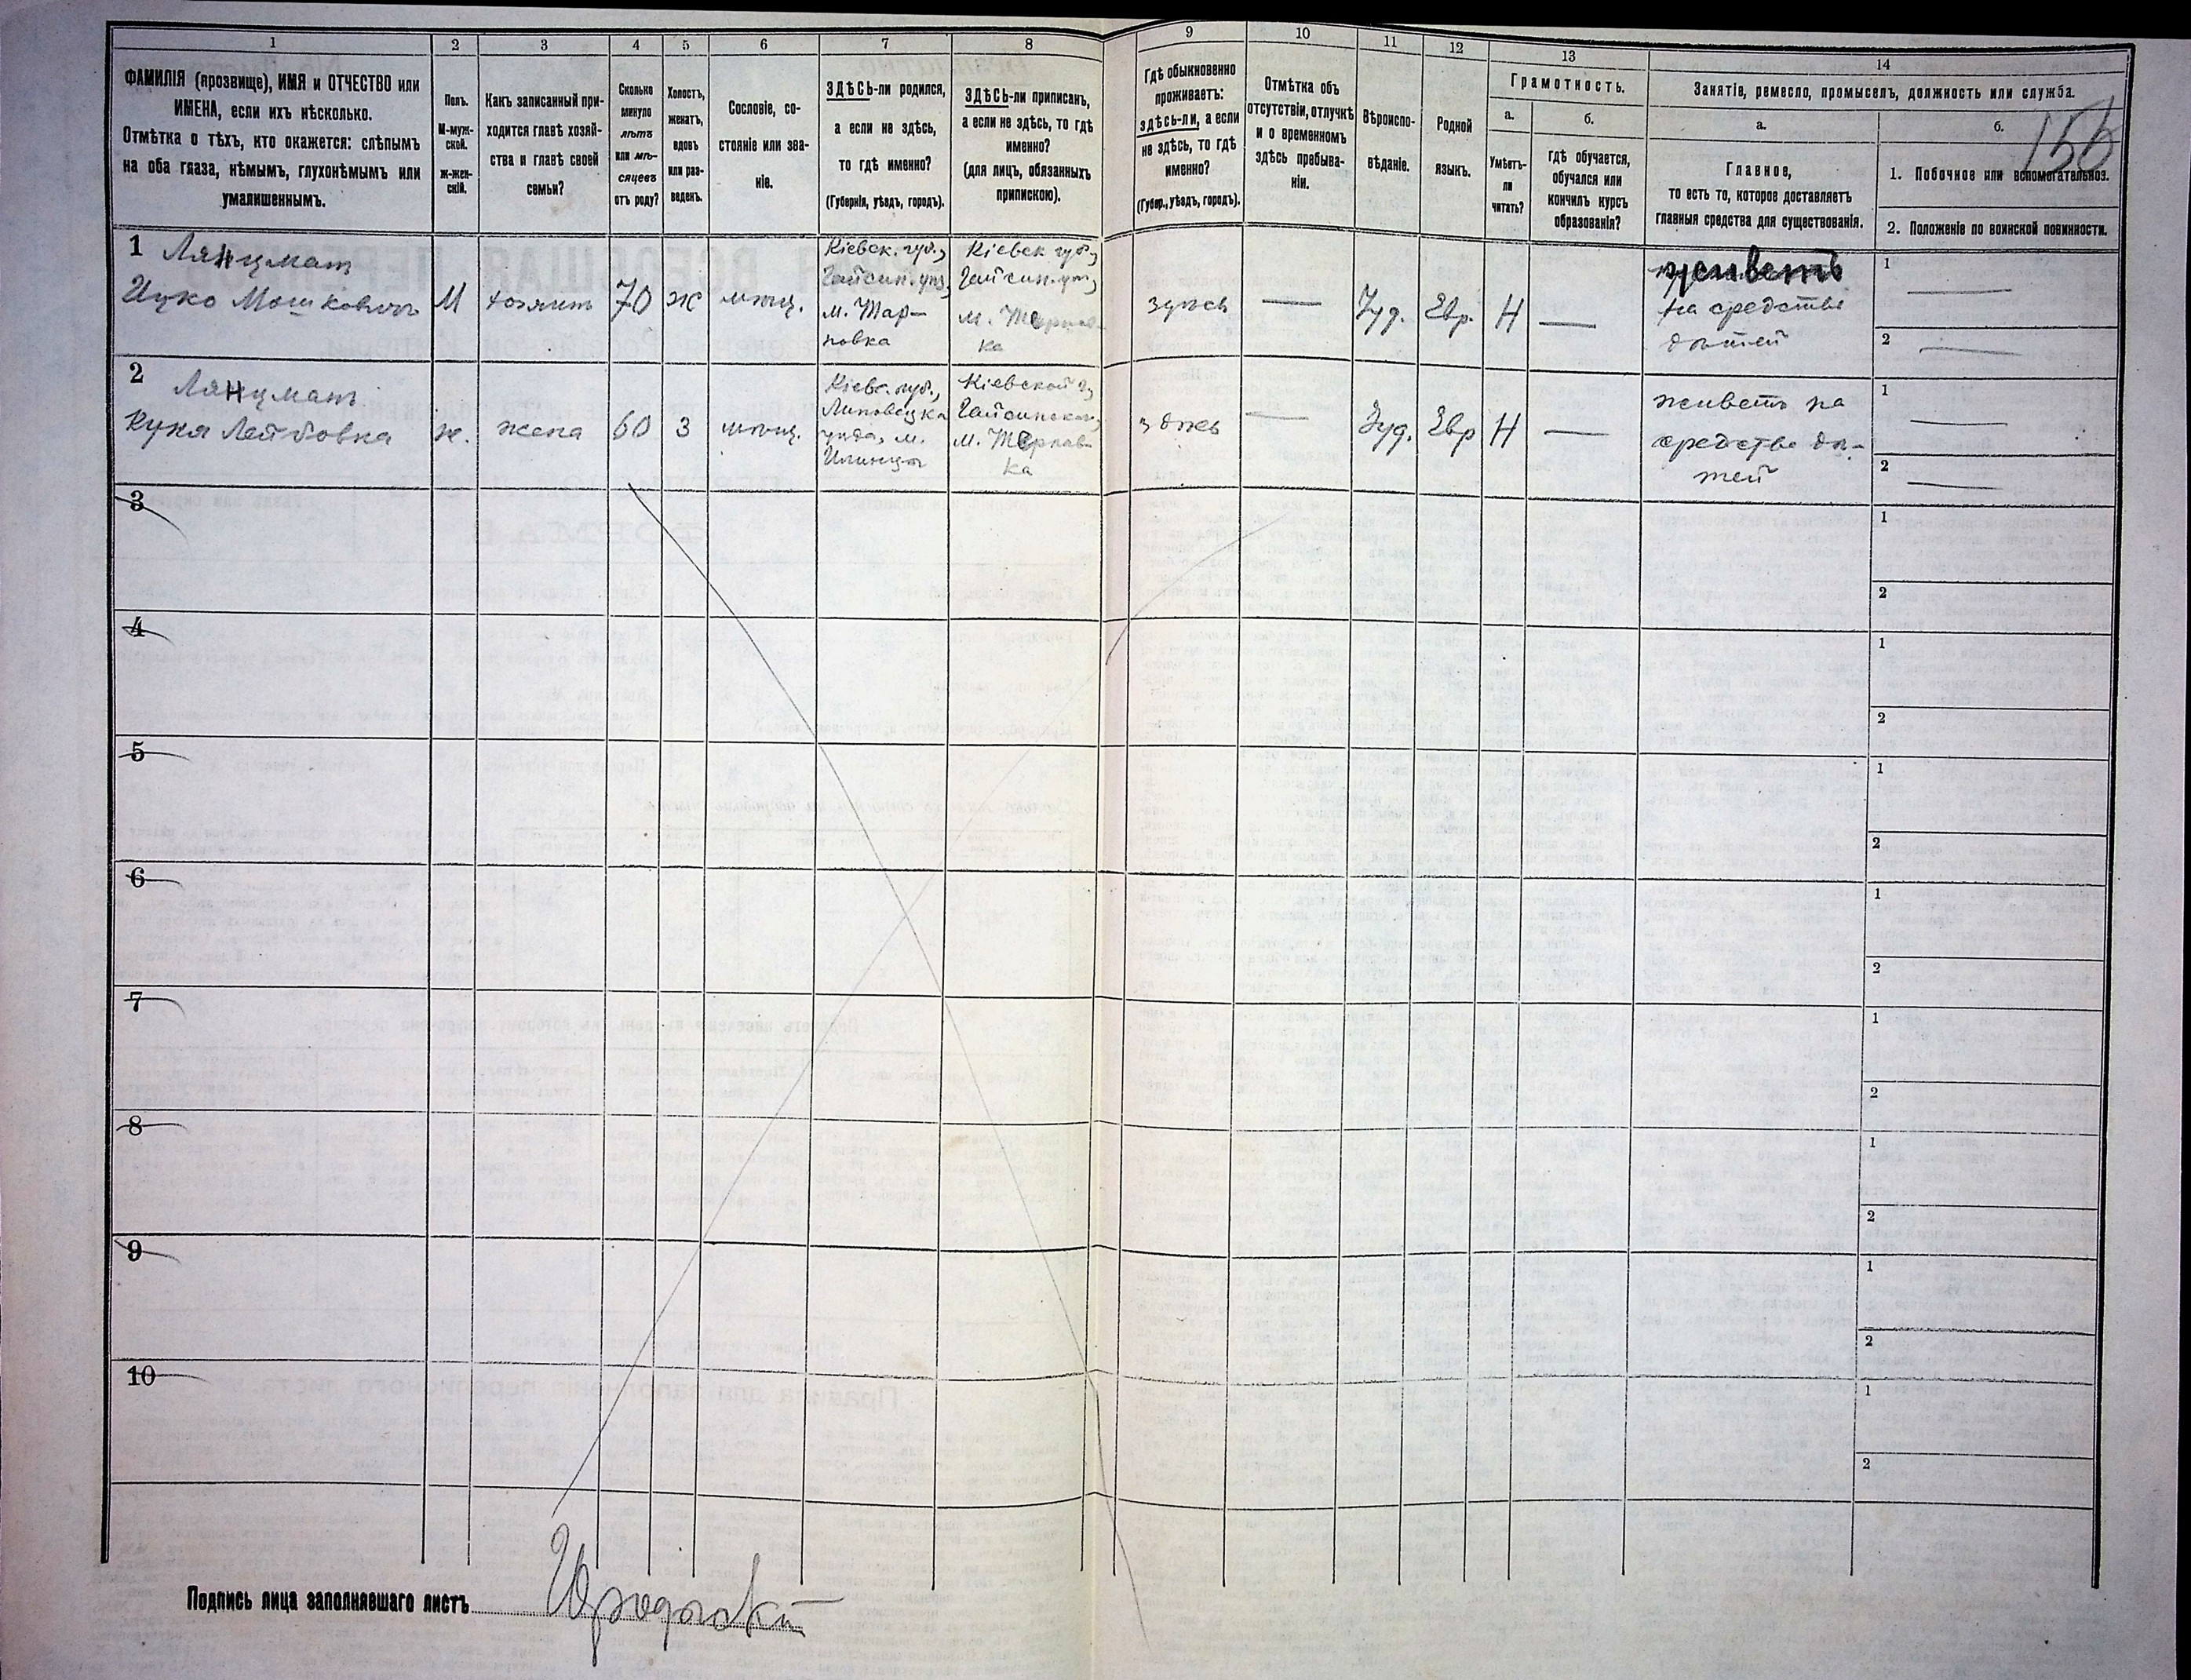 1
2
3
4
5
6
7
8
9
10
11
12
13
14
ФАМИЛІЯ (прозвище), ИМЯ и ОТЧЕСТВО или
ИМЕНА, если ихъ нѣсколько.
Отмѣтка о тѣхъ, кто окажется: слѣпымъ
на оба глаза, нѣмымъ, глухонѣмымъ или
умалишеннымъ.
Полъ.
М-муж-
ской.
Ж-жен-
скій.
Какъ записанный при-
ходится главѣ хозяй-
ства и главѣ своей
семьи?
Сколько
минуло
лѣтъ
или мѣ-
сяцевъ
отъ роду?
Холостъ,
женатъ,
вдовъ
или раз-
веденъ.
Сословіе, со-
стояніе или зва-
ніе.
ЗДѢСЬ-ли родился,
а если не здѣсь,
то гдѣ именно?
(Губернія, уѣздъ, городъ).
ЗДѢСЬ-ли приписанъ,
а если не здѣсь, то гдѣ
именно?
(для лицъ, обязанныхъ
припискою).
Гдѣ обыкновенно
проживаетъ:
здѣсь-ли, а если
не здѣсь, то гдѣ
именно?
(Губер., уѣздъ, городъ).
Отмѣтка объ
отсутствіи, отлучкѣ
и о временномъ
здѣсь пребыва-
ніи.
Вѣроиспо-
вѣданіе.
Родной
языкъ.
Грамотность.
а.
Умѣетъ-
ли
читать?
б.
гдѣ обучается,
обучался или
кончилъ курсъ
образованія?
Занятіе, ремесло, промыселъ, должность или служба.
а.
Главное,
то есть то, которое доставляетъ
главныя средства для существованія.
б.
156
1. Побочное или вспомогательное.
2. Положеніе по воинской повинности.
1
Лянцманъ
Ицко Мошковичъ
М
хозяинъ
70
ж
мѣщ.
Кіевск. губ.,
Гайсин. уѣз.,
м. Тар-
новка
Кіевск губ.,
Гайсин. уѣз.,
м. Тернов-
ка
здѣсь
—
Іуд.
Евр.
Н
—
живетъ
на средства
дѣтей
1
—
2
—
2
Лянцманъ
Куня Лейбовка
ж.
жена
60
З
мѣщ.
Кіевс. губ.,
Липовецка
уѣзда, м.
Илинцы
Кіевской г.,
Гайсинскаго,
м. Тернов-
ка
здѣсь
—
Іуд.
Евр
Н
—
живетъ на
средства дѣ-
тей
1
—
2
—
3
1
2
4
1
2
5
1
2
6
1
2
7
1
2
8
1
2
9
1
2
10
1
2
Подпись лица заполнявшаго листъ